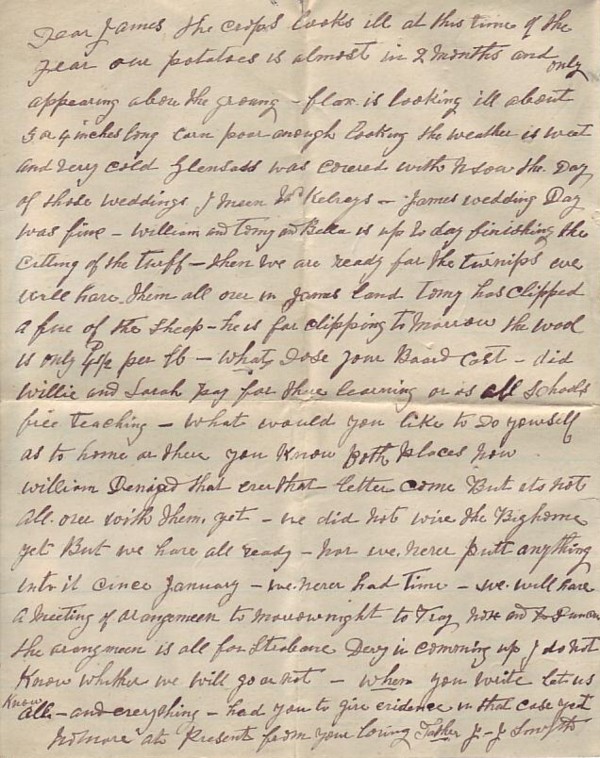 Dear James the crops looks ill at this time of the
year our potatoes is almost in 2 months and only
appearing above the groung - flax is looking ill about
3 or 4 inches long corn poor anough looking the weather is weet
and very cold Glensass was covered with snow the Day
of those weddings I meen McKelveys - James wedding Day
was fine - William and Tomy and Bella is up to day finishing the
citting of the turff - then we are ready for the turnips we
will have them all over in James land Tomy has clipped
a fue of the sheep - he is for clipping to morrow the wool
is only 4½ per lb - what dose your Board cost - did
Willie and Sarah pay for there learning or is all schools
free teaching - what would you like to do yourself
as to home or there you know both places now
William Denayed that ever that letter come But its not
all over with them yet - we did not wire the Bighome
yet But we have all ready - nor we never putt anything
into it cince January - we never had time - we will have
a meeting of arangemeen to morrow night to Tray and
the arangmeen is all for Strabane Devy is comming up I do not
know whither we will go or not - when you write let us
know all - and everything - had you to give evidence in that case yet
no more at Present from your loving Father J-J